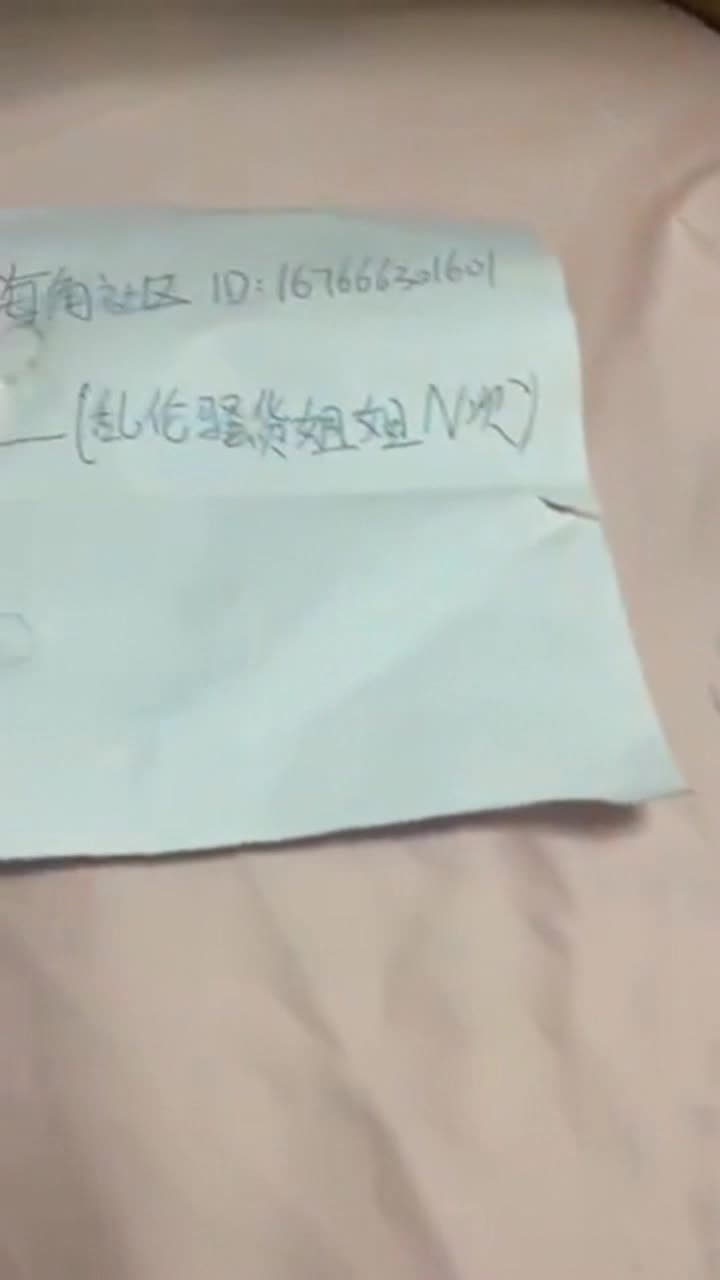 海角社区 ID:167666301601
—(乱伦骚货姐姐N次)